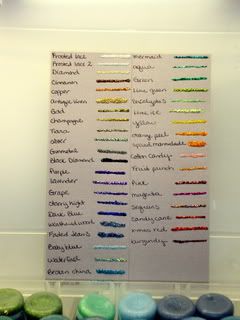 Frosted lace
Frosted lace 2
Diamond
Cinnamon
copper
antique linen
Gold
champagne
Tiara
silver
Gunmetal
Black Diamond
Purple
lavender
Grape
starry night
Dark Blue
Weathered wood
Faded Jeans
Baby blue
waterfall
Broken china
mermaid
aqua
Green
lime green
Eucalyptus
yellow
orange peel
spiced marmalade
Cotton Candy
Fruit punch
Pink
magenta
Sequins
candy cane
xmas red
burgundy